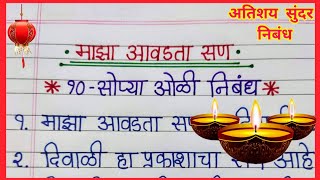 अतिशय सुंदर
निबंध
माझा आवडता सण
१०-सोप्या ओळी निबंध
१. माझा आवडता
२. दिवाळी हा प्रकाशाचा आहे